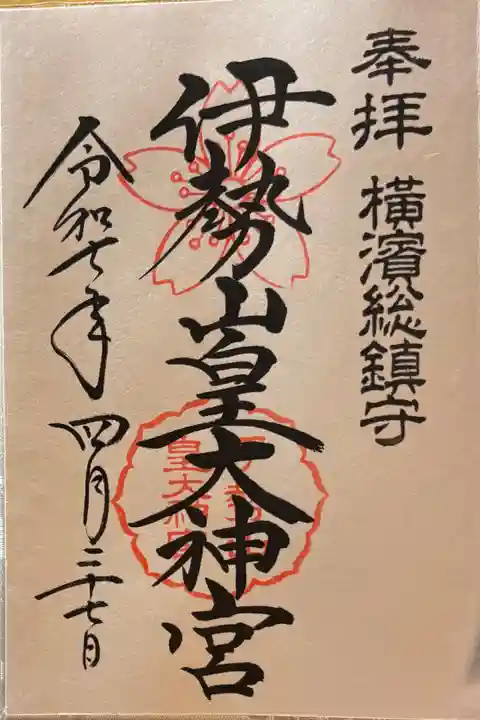 奉拝 横濱総鎮守
伊勢山皇大神宮
令和七年 四月二十七日